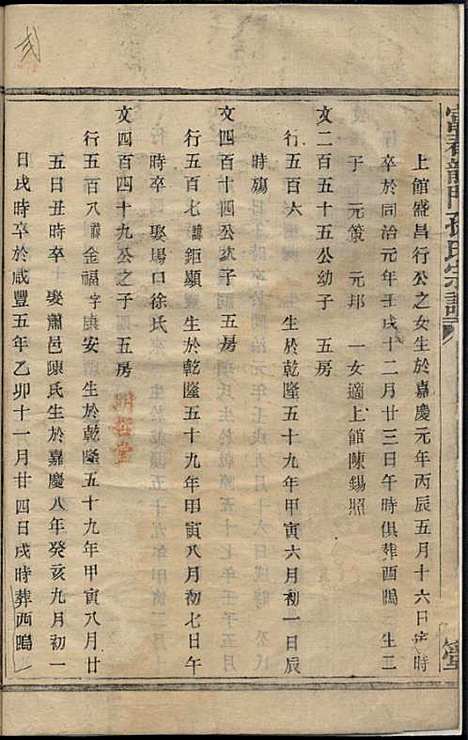 富春龍門孫氏宗譜
上館盛昌行公之女生於嘉慶元年丙辰五月十六日寅時
卒於同治元年壬戌十二月廿三日午時俱葬酉鳴 生二
子 元策 元邦 一女適上館陳錫照
文二百五十五公幼子 五房
行五百六 生於乾隆五十九年甲寅六月初一日辰
時殤
文四百十四公次子 五房
行五百七 諱鉅顯 生於乾隆五十九年甲寅八月初七日午
時卒 娶場口徐氏
文四百四十九公之子 五房
行五百八 諱金福 字康安 生於乾隆五十九年甲寅八月廿
五日丑時卒 娶蕭邑陳氏生於嘉慶八年癸亥九月初一
日戌時卒於咸豐五年乙卯十一月廿四日戌時葬西鳴
堂